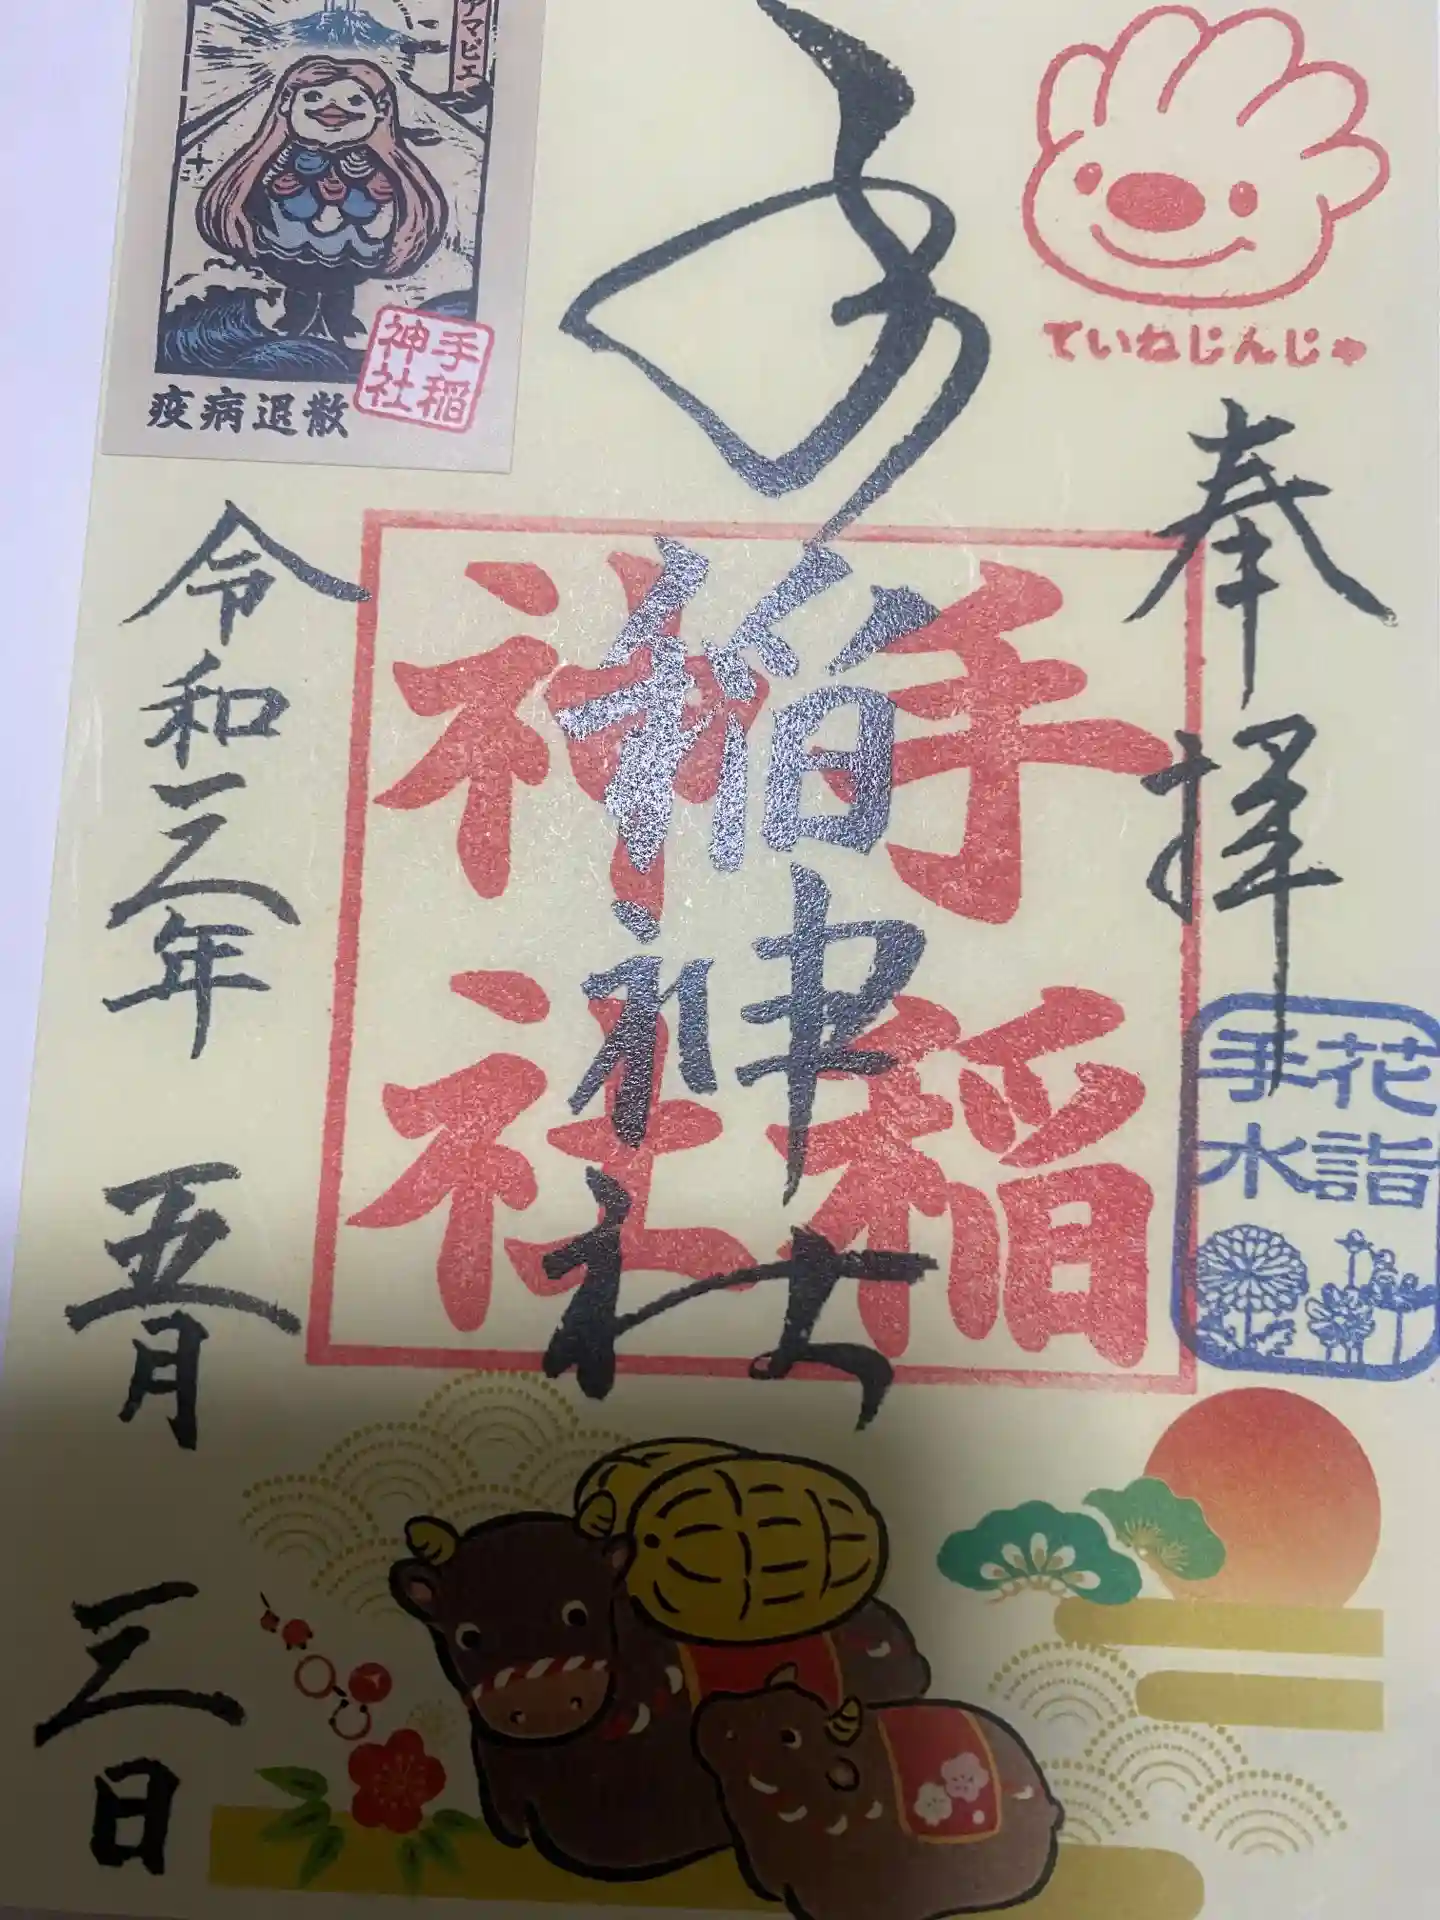 ていねじんじゃ
奉拝
花手水詣
手稲神社
手稲神社
アマビエ
手稲神社
疫病退散
令和三年 五月 三日